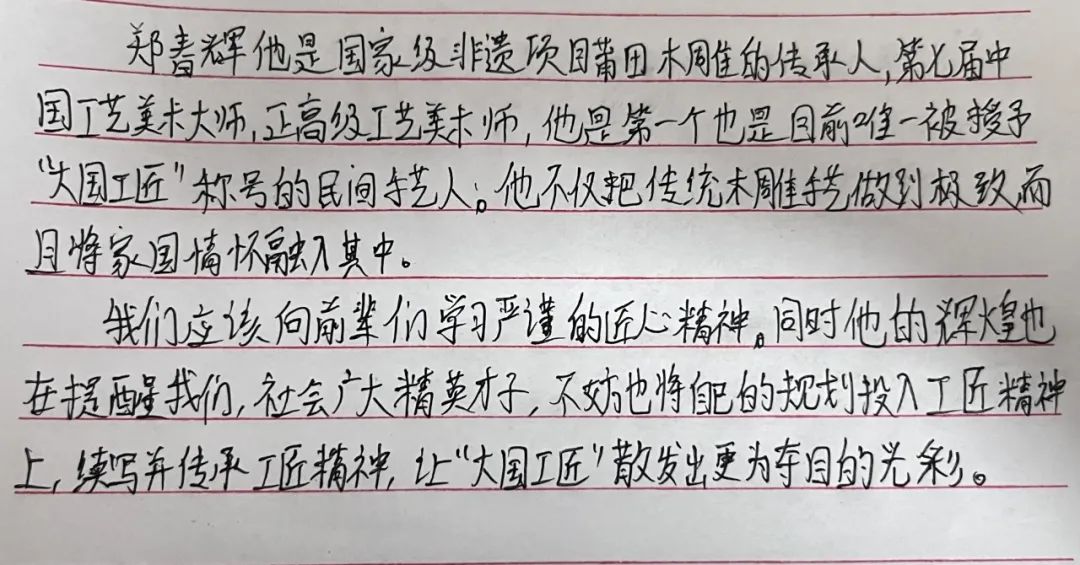 郑春辉他是国家级非遗项目莆田木雕的传承人,第七届中
国工艺美术大师,正高级工艺美术师,他是第一个也是目前唯一被授予
“大国工匠”称号的民间手艺人。他不仅把传统木雕手艺做到极致,而
且将家国情怀融入其中。
我们应该向前辈们学习严谨的匠心精神。同时他的辉煌也
在提醒我们,社会广大精英才子,不妨也将自己的规划投入工匠精神
上,续写并传承工匠精神,让“大国工匠”散发出更为夺目的光彩。